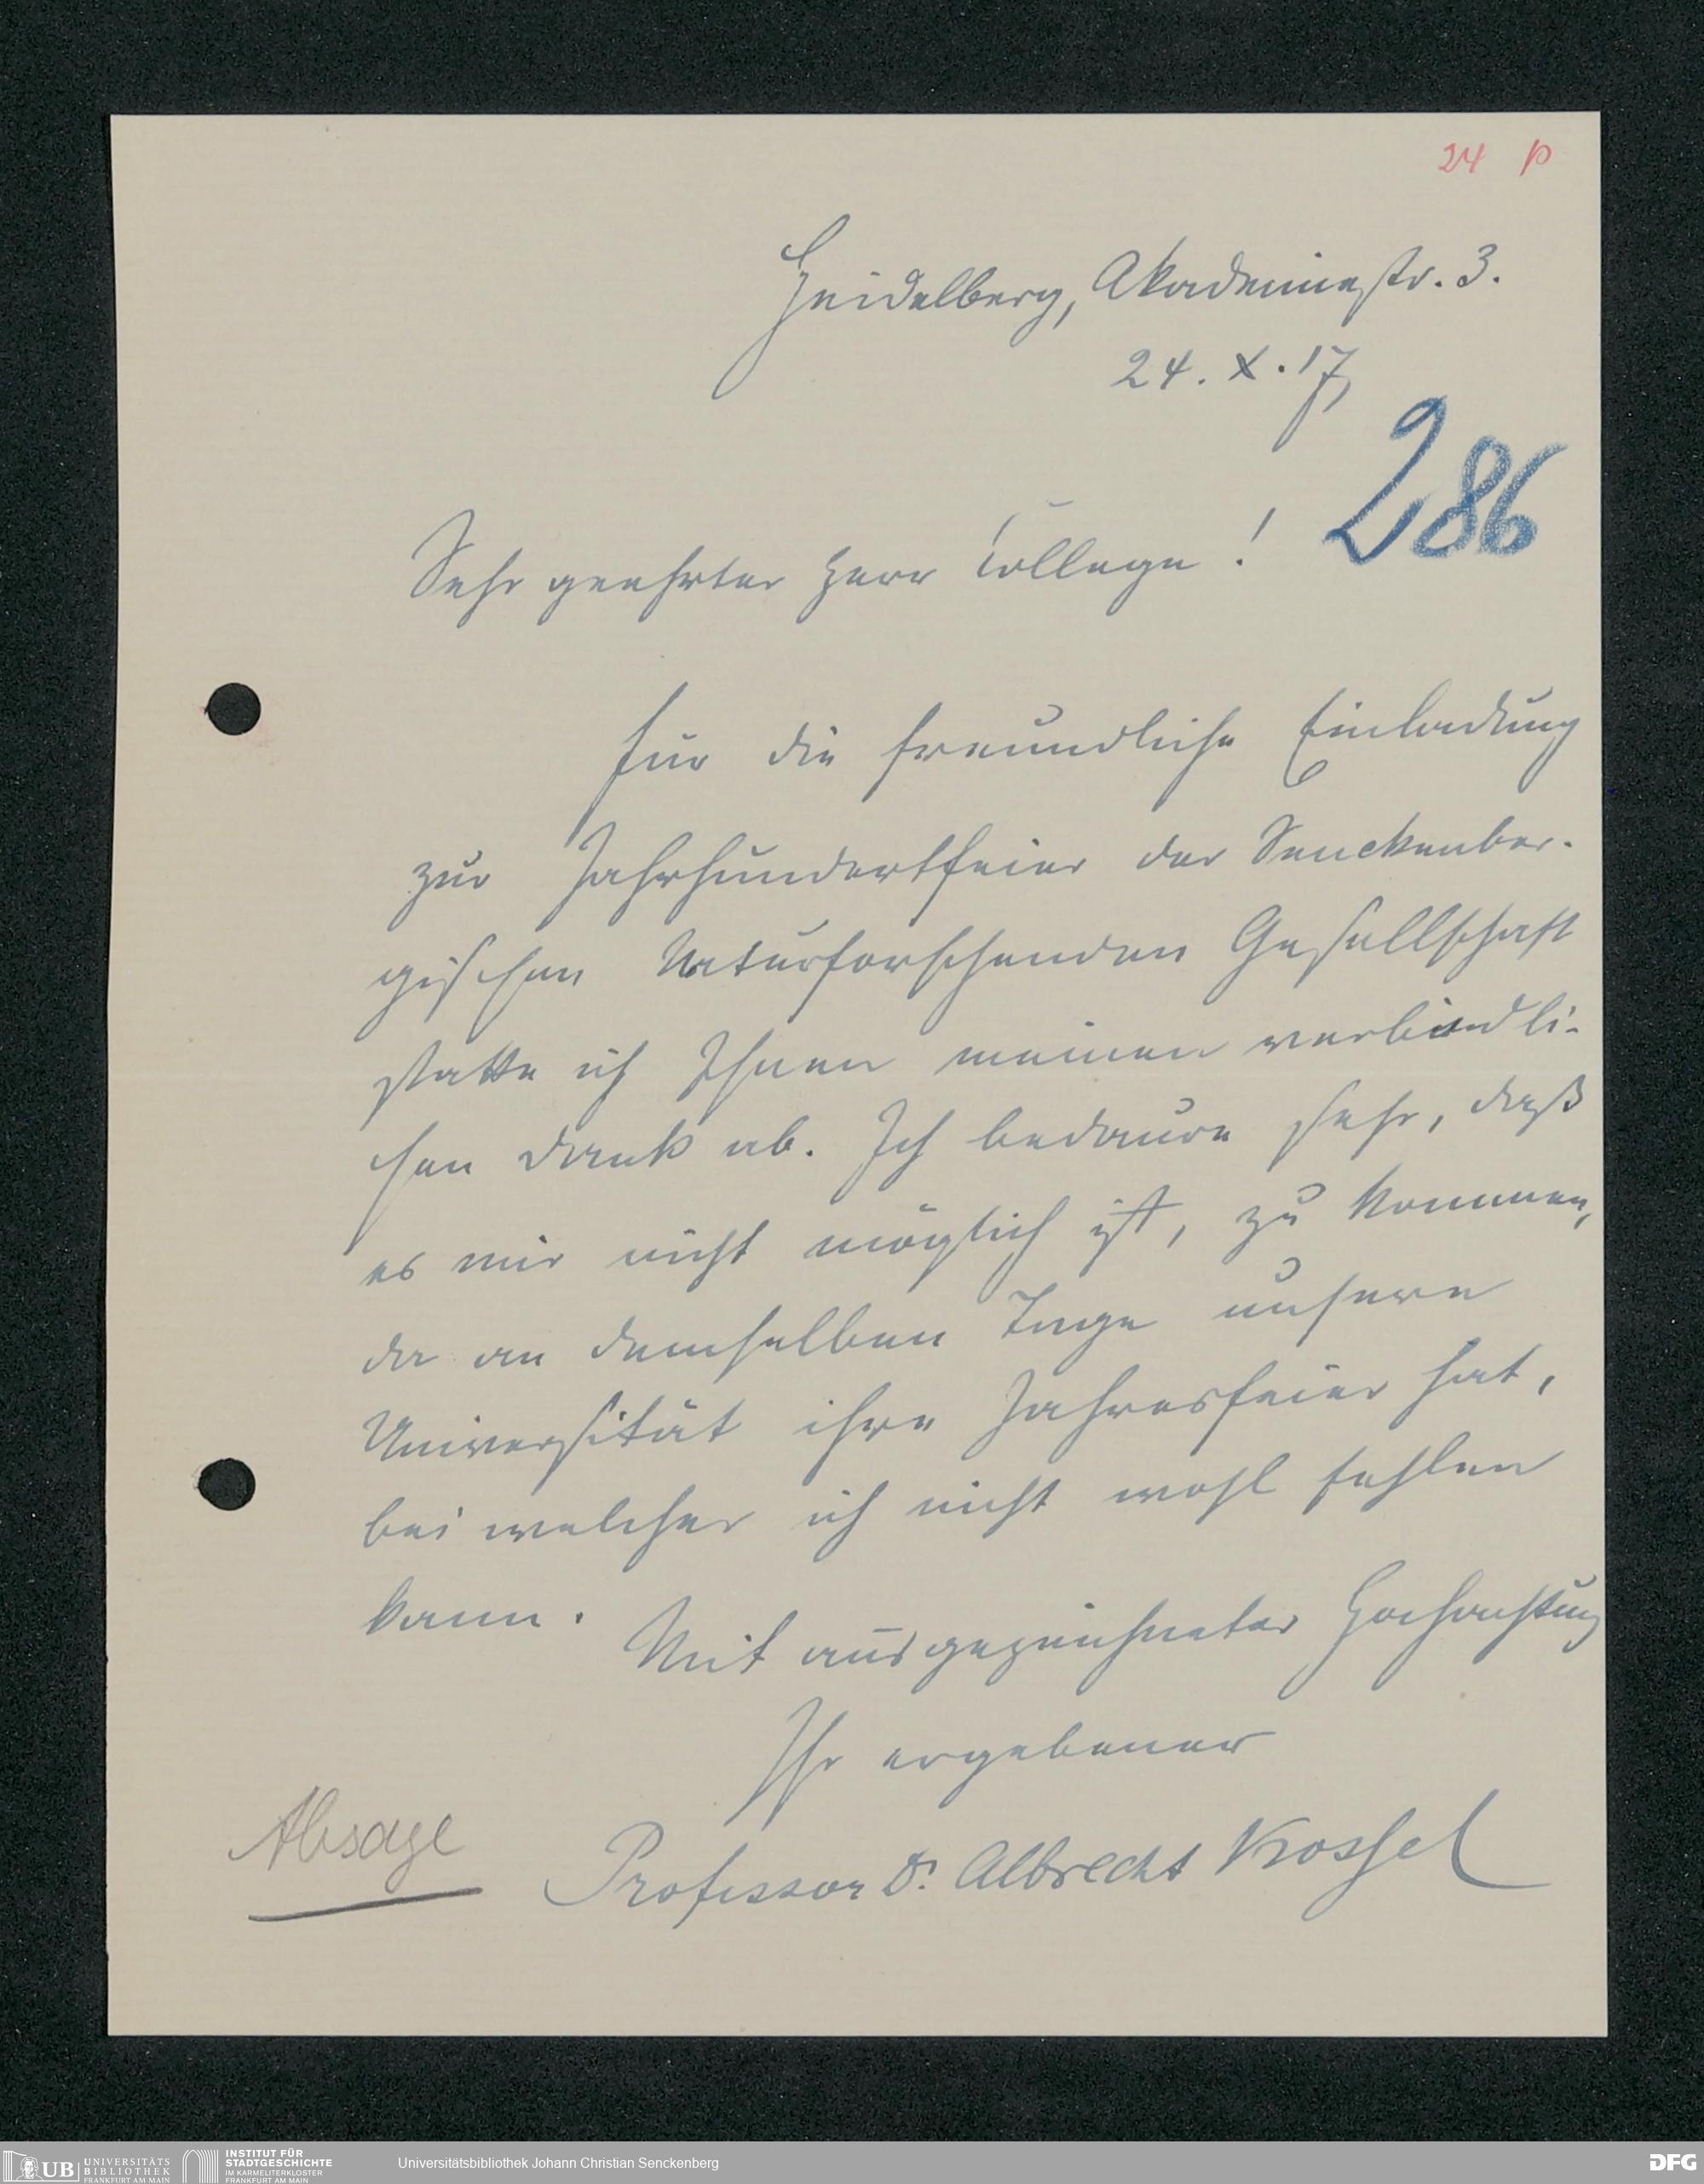 24 p
Heidelberg, Akademiestr. 3.
24. X. 17
286
Sehr geehrter Herr College!
Für die freundliche Einladung
zur Jahrhundertfeier der Senckenber-
gischen Naturforschenden Gesellschaft
statte ich Ihnen meinen verbindli-
chen Dank ab. Ich bedaure sehr, daß
es mir nicht möglich ist, zu kommen,
da an demselben Tage unsere
Universität ihre Jahresfeier hat,
bei welcher ich nicht wohl fehlen
kann.
Mit ausgezeichneter Hochachtung
Ihr ergebener
Professor Dr. Albrecht Kossel
Absage
UB UNIVERSITÄTS
BIBLIOTHEK
FRANKFURT AM MAIN
INSTITUT FÜR
STADTGESCHICHTE
IM KARMELITERKLOSTER
FRANKFURT AM MAIN
Universitätsbibliothek Johann Christian Senckenberg
DFG